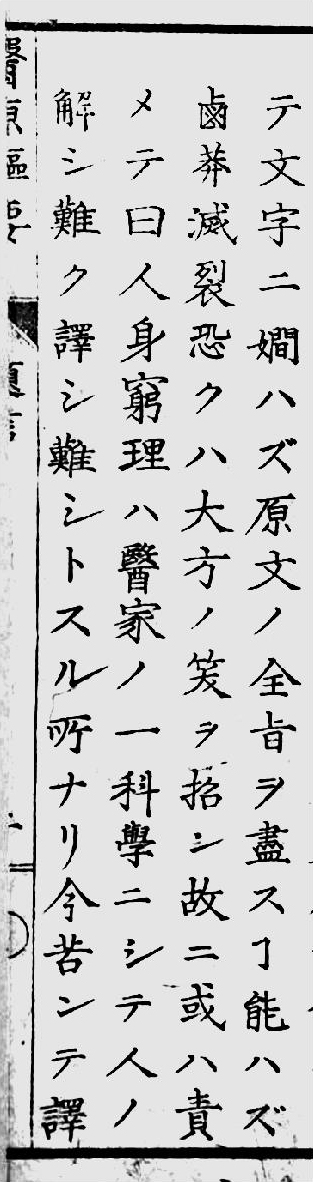 テ文字ニ嫺ハズ原文ノ全旨ヲ盡スヿ能ハズ
鹵莽滅裂恐クハ大方ノ笑ヲ招シ故ニ或ハ責
メテ曰人身窮理ハ醫家ノ一科學ニシテ人ノ
解シ難ク譯シ難シトスル所ナリ今苦ンテ譯
醫原樞要